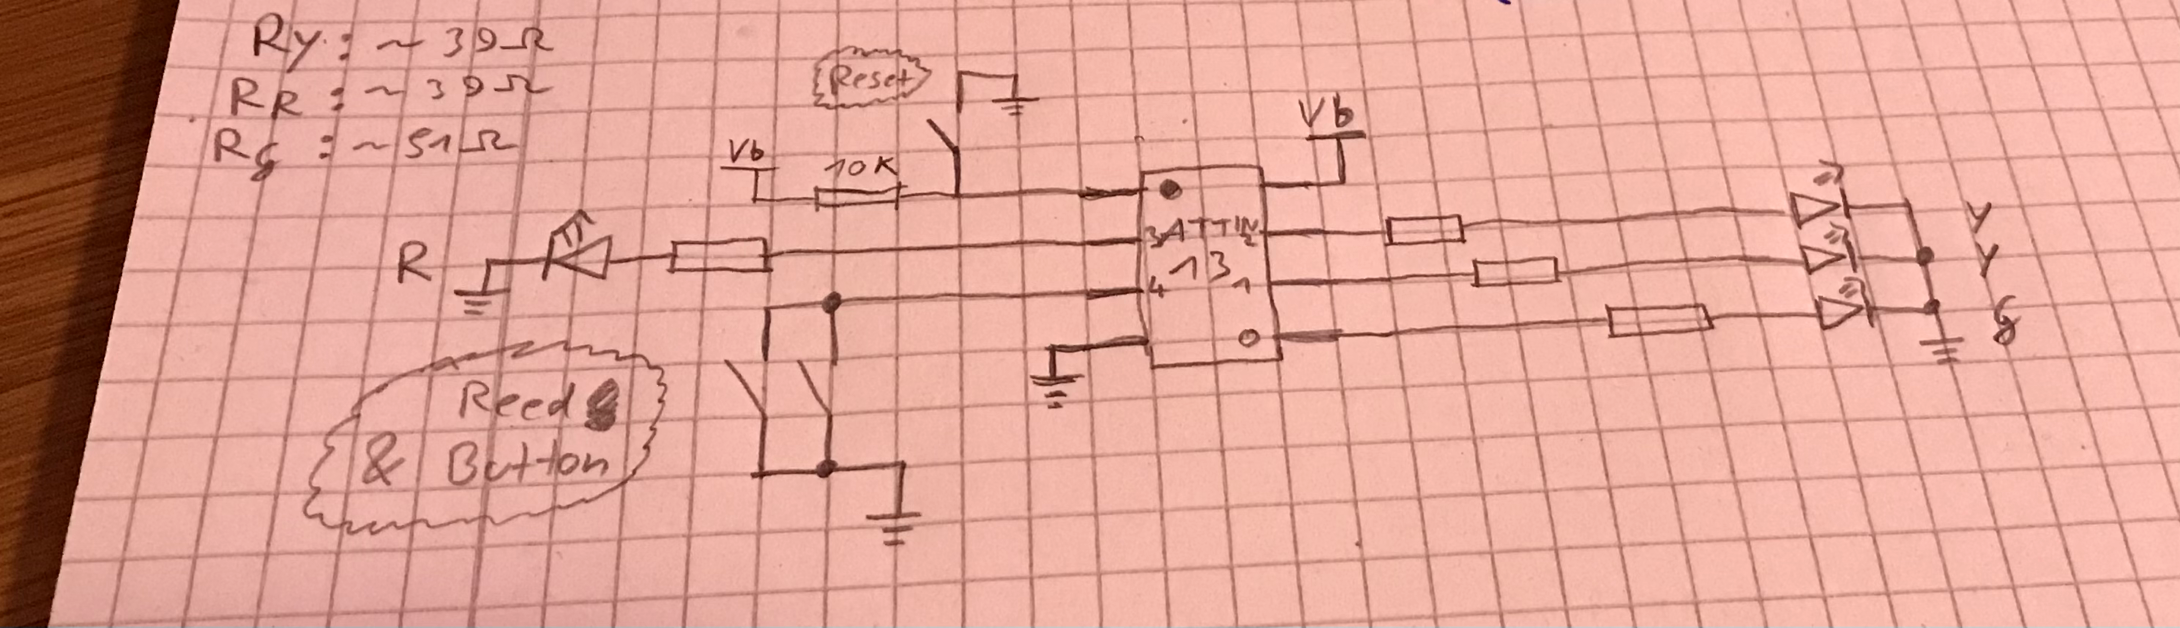 Ry: ~ 39Ω
RR: ~ 39Ω
Rg: ~ 51Ω
Reset
Vb
Vb
10K
3 ATTIN 2
13
4 1
0
R
Y
Y
g
Reed
& Button